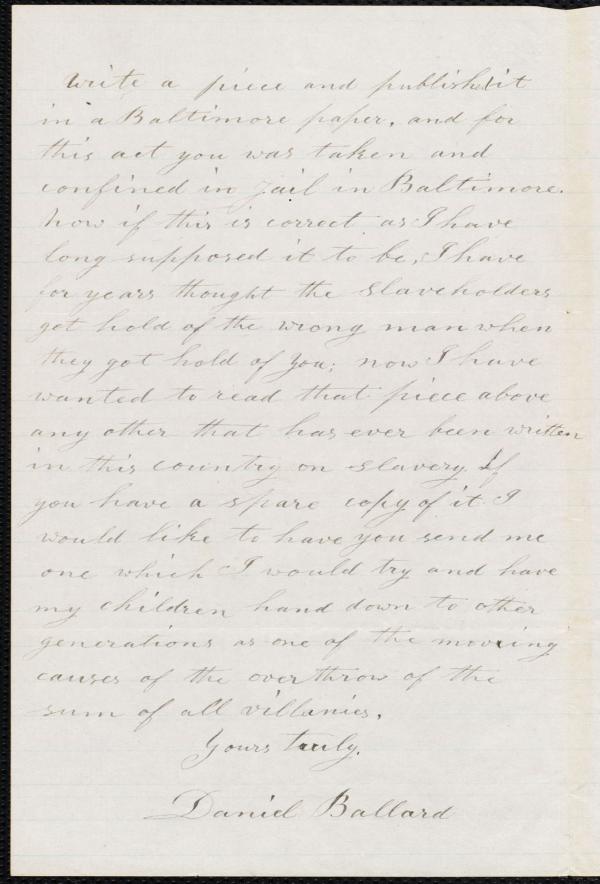 write a piece and publish it
in a Baltimore paper, and for
this act you was taken and
confined in jail in Baltimore.
now if this is correct as I have
long supposed it to be, I have
for years thought the slaveholders
got hold of the wrong man when
they got hold of you; now I have
wanted to read that piece above
any other that has ever been written
in this country on slavery If
you have a spare copy of it I
would like to have you send me
one which I would try and have
my children hand down to other
generations as one of the moving
causes of the overthrow of the
sum of all villanies.
Yours truly.
Daniel Ballard